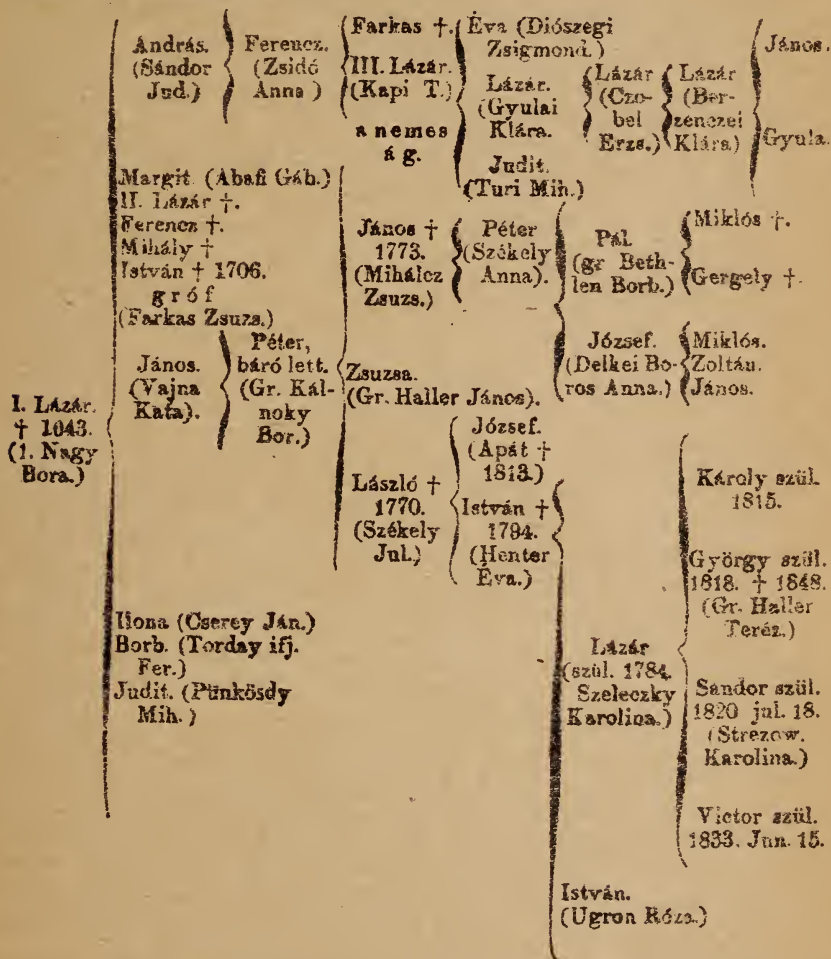 I. Lázár.
† 1643.
(1. Nagy
Bora.)
András.
(Sándor
Jud.)
Ferencz.
(Zsidó
Anna )
Farkas †.
III. Lázár.
(Kapi T.)
a nemes
á g.
Éva (Diószegi
Zsigmond.)
Lázár.
(Gyulai
Klára.
Judit.
(Turi Mih.)
Lázár
(Czo-
bel
Erzs.)
Lázár
(Ber-
zenczei
Klára)
János.
Gyula.
Margit (Abafi Gáb.)
II. Lázár †.
Ferencz †.
Mihály †
István † 1706.
gróf
(Farkas Zsuzs.)
János.
(Vajna
Kata).
Péter,
báró lett.
(Gr. Kál-
noky
Bor.)
János †
1773.
(Mihálcz
Zsuzs.)
Péter
(Székely
Anna).
Pál
(gr Beth-
len Borb.)
Miklós †.
Gergely †.
József.
(Delkei Bo-
ros Anna.)
Miklós.
Zoltán.
János.
Zsuzsa.
(Gr. Haller János).
László †
1770.
(Székely
Jul.)
József.
(Apát †
1813.)
István †
1794.
(Henter
Éva.)
Lázár
(szül. 1784.
Szeleczky
Karolina.)
Károly szül.
1815.
György szül.
1818. † 1848.
(Gr. Haller
Teréz.)
Sándor szül.
1820 jul. 18.
(Strezow.
Karolina.)
Victor szül.
1833. Jun. 15.
István.
(Ugron Róza.)
Ilona (Cserey Ján.)
Borb. (Torday ifj.
Fer.)
Judit. (Pünkösdy
Mih. )